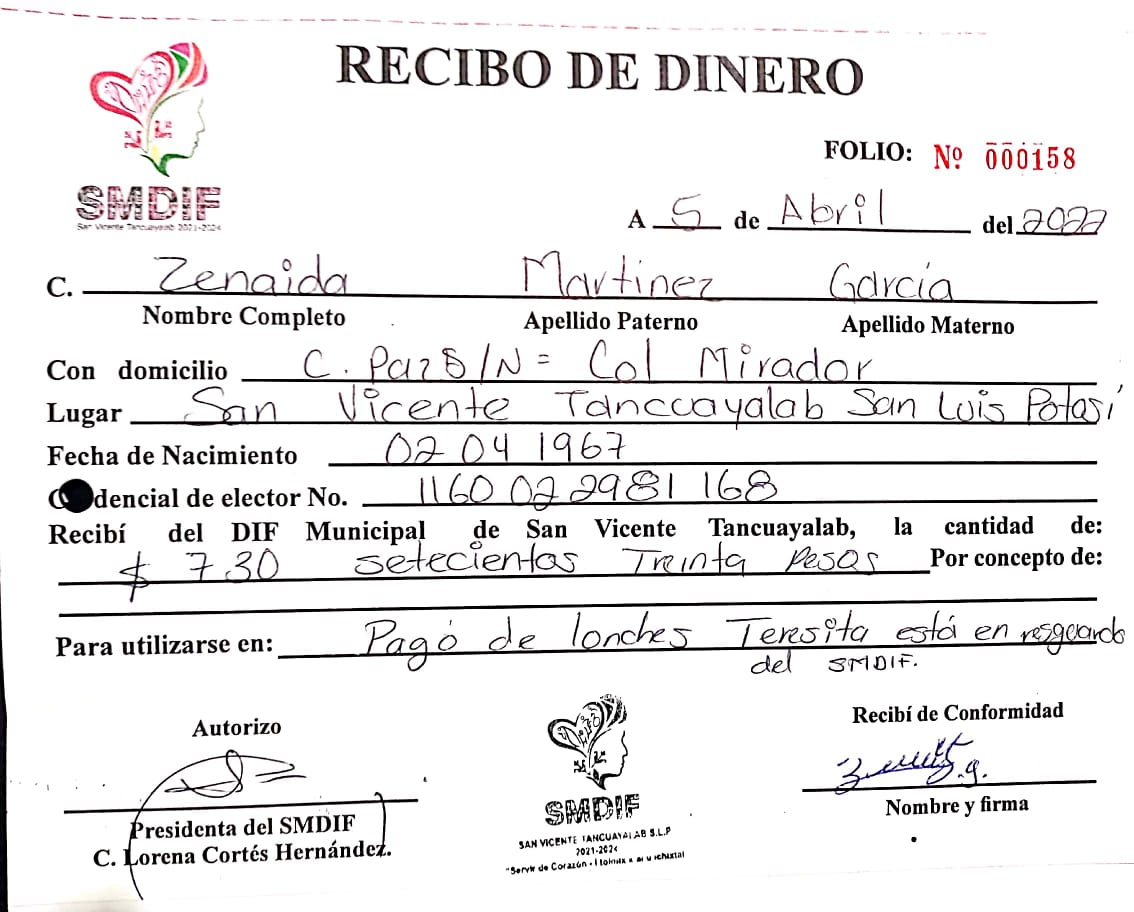 RECIBO DE DINERO
SMDIF
San Vicente Tancuayalab 2021-2024
FOLIO: Nº 000158
A 5 de Abril del 2022
C. Zenaida Martinez García
Nombre Completo Apellido Paterno Apellido Materno
Con domicilio C. Paz S/N= Col Mirador
Lugar San Vicente Tancuayalab San Luis Potasí
Fecha de Nacimiento 02 04 1967
dencial de elector No. 1160 02 2981 168
Recibí del DIF Municipal de San Vicente Tancuayalab, la cantidad de:
$ 730 setecientos Treinta Pesos Por concepto de:
Para utilizarse en: Pagó de lonches Teresita está en resguardo
del SMDIF.
Autorizo
Recibí de Conformidad
Presidenta del SMDIF
C. Lorena Cortés Hernández.
SMDIF
SAN VICENTE TANCUAYALAB S.L.P
2021-2024
"Servir de Corazón
Nombre y firma